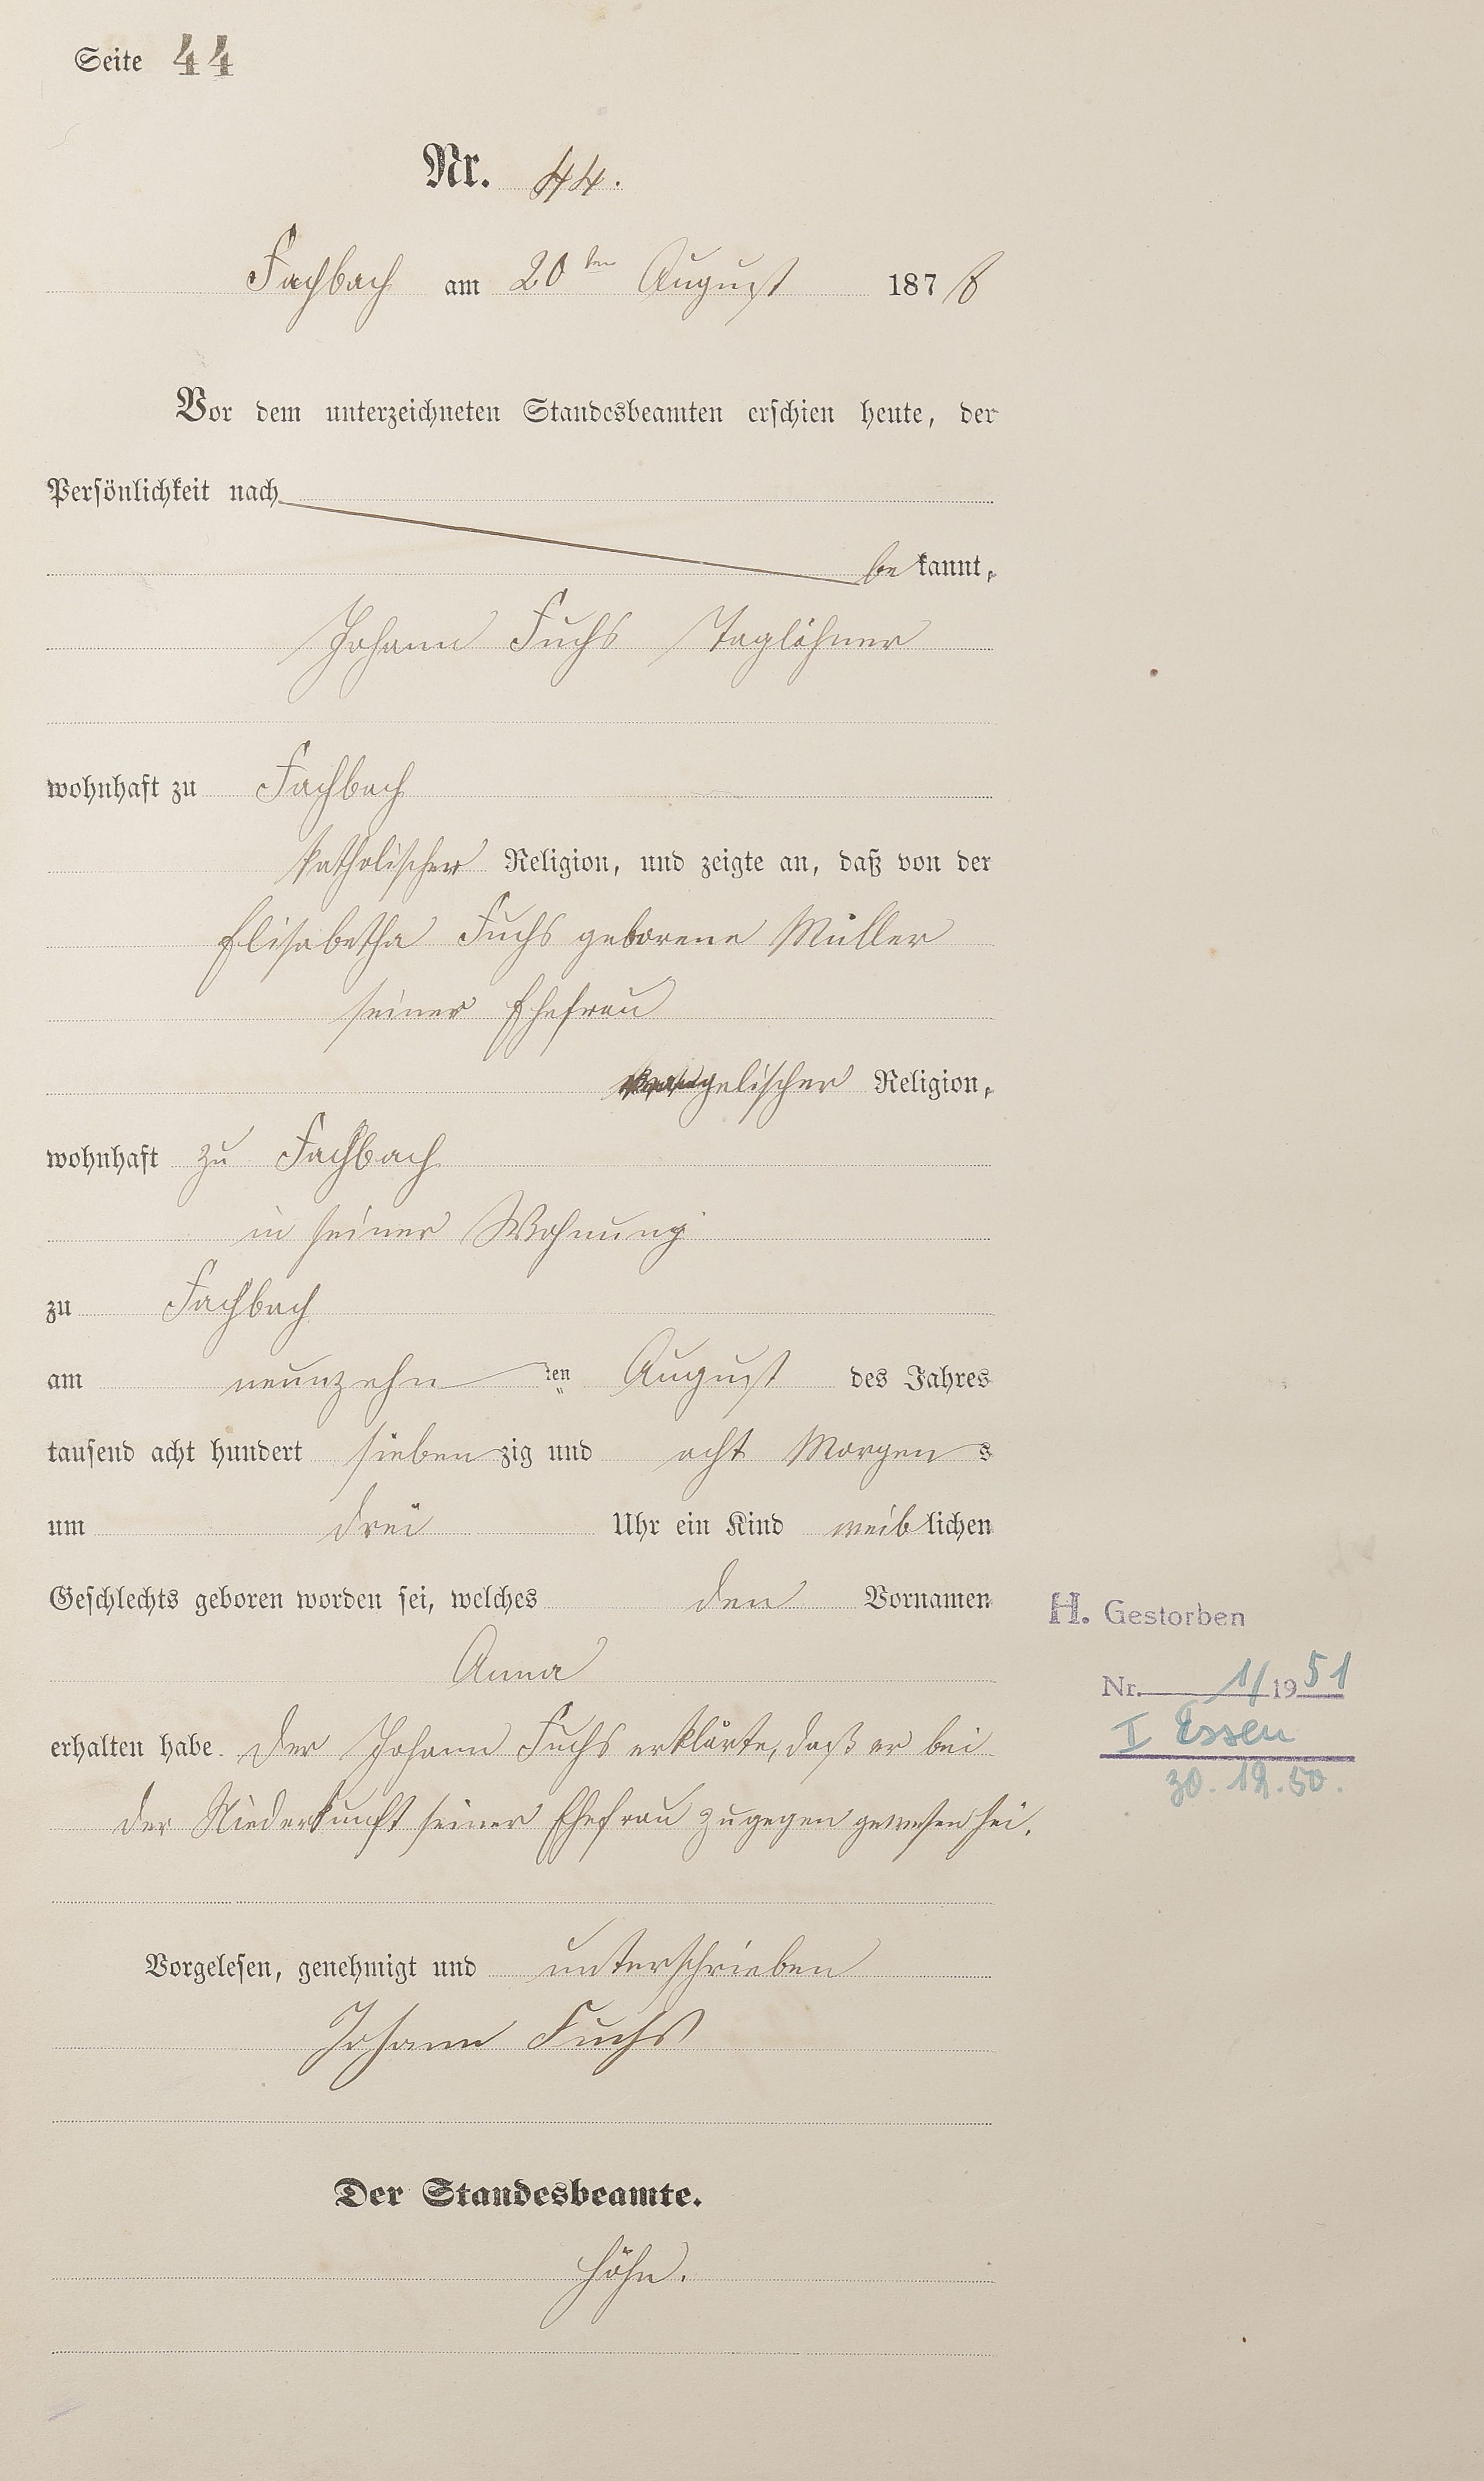 Seite 44
Nr. 44.
Fachbach am 20ten August 1878
Vor dem unterzeichneten Standesbeamten erschien heute, der
Persönlichkeit nach
bekannt,
Johann Fuchs Taglöhner
wohnhaft zu Fachbach
katholischer Religion, und zeigte an, daß von der
Elisabetha Fuchs geborene Müller
seiner Ehefrau
evangelischer Religion,
wohnhaft zu Fachbach
in seiner Wohnung
zu Fachbach
am neunzehnten August des Jahres
tausend acht hundert siebenzig und acht Morgens
um drei Uhr ein Kind weiblichen
Geschlechts geboren worden sei, welches den Vornamen
Anna
erhalten habe. Der Johann Fuchs erklärte, daß er bei
der Niederkunft seiner Ehefrau zugegen gewesen sei.
Vorgelesen, genehmigt und unterschrieben
Johann Fuchs
Der Standesbeamte.
Höhn.
H. Gestorben
Nr. 1/1951
I Essen
30.12.50.